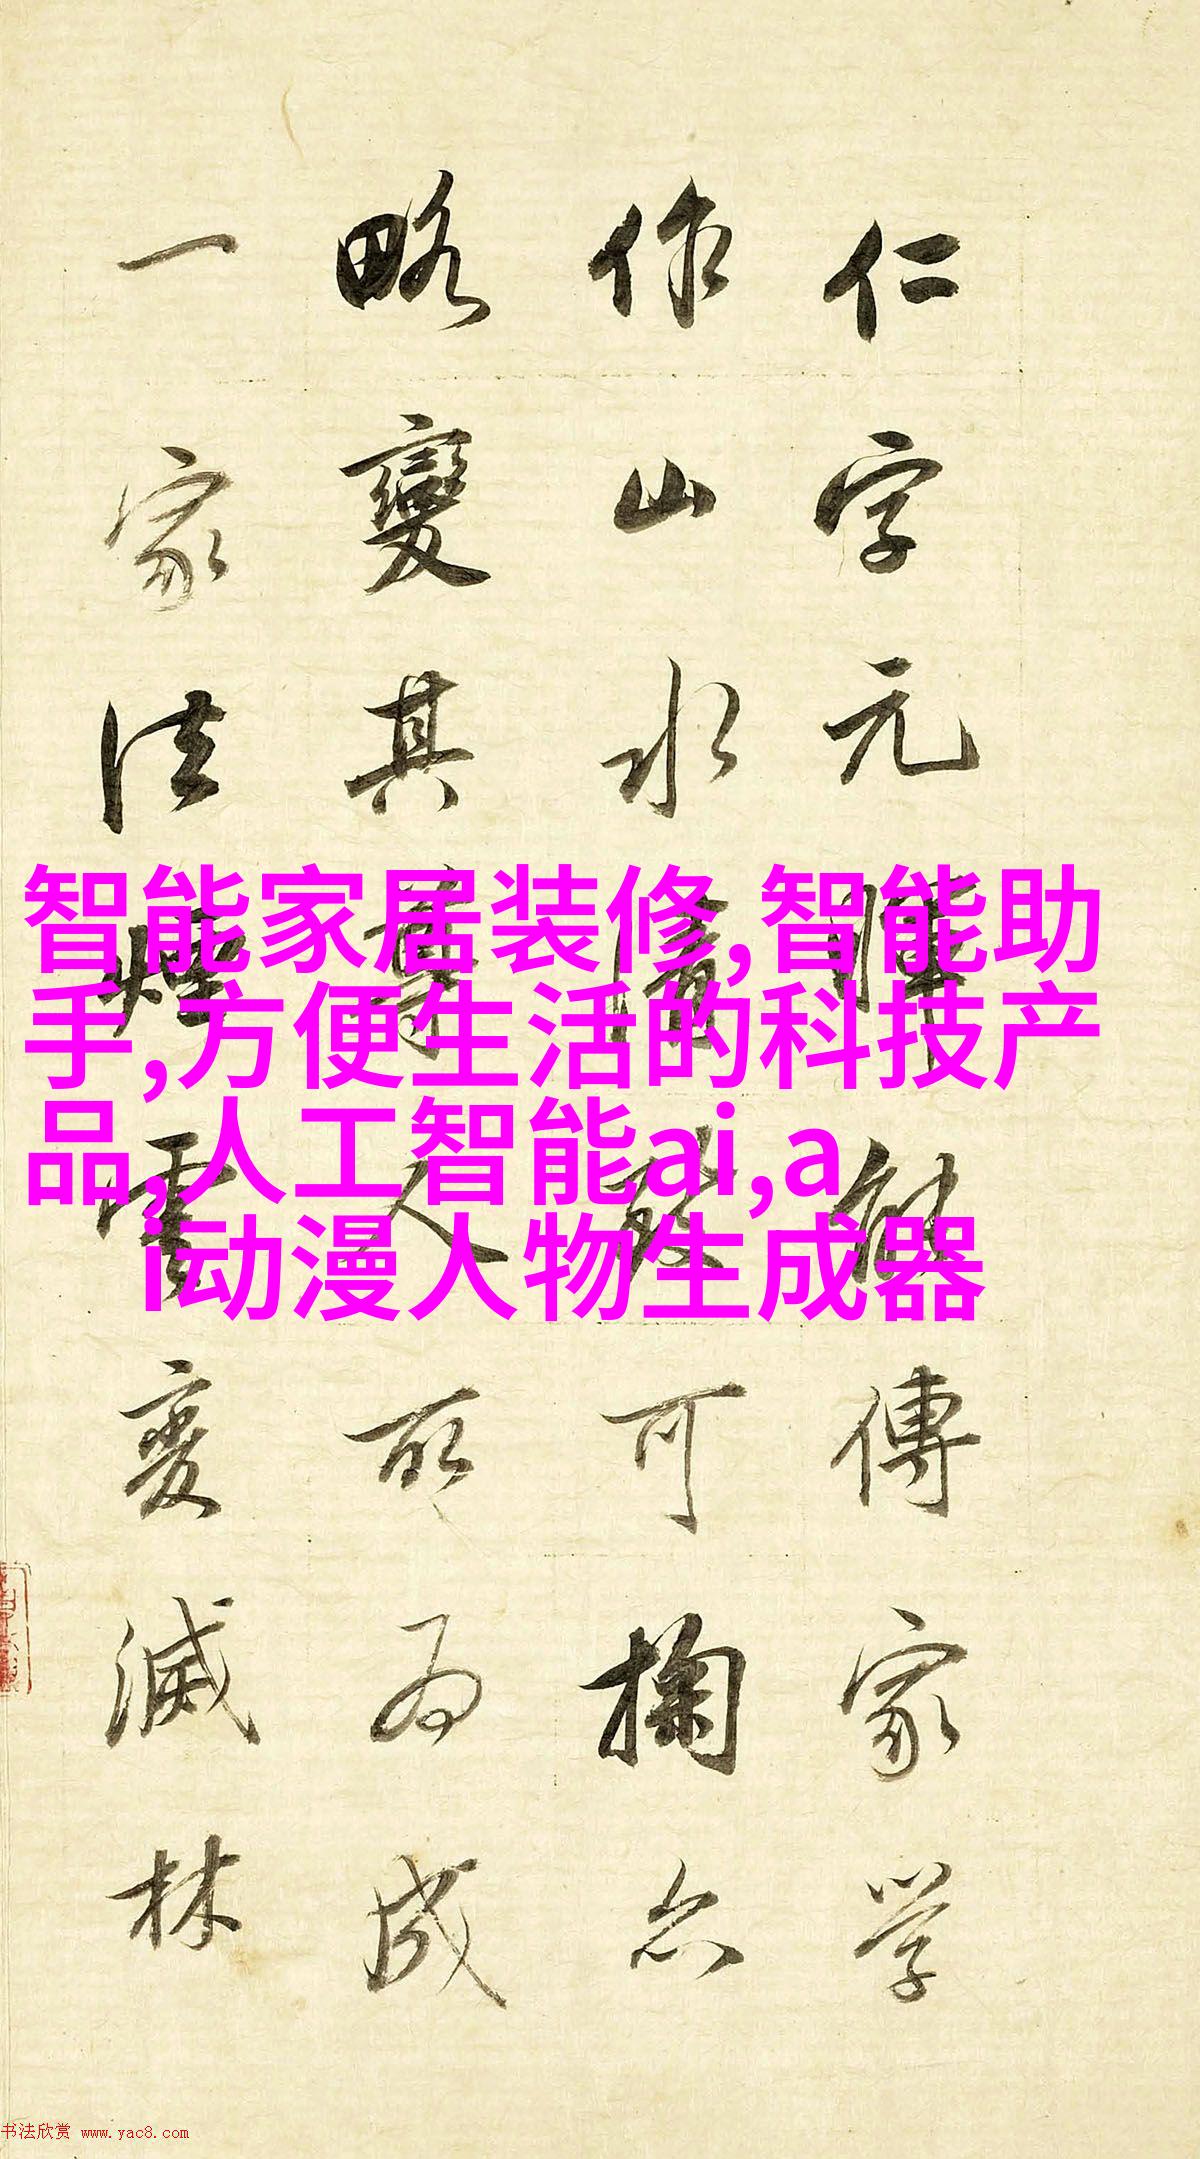 仁字元暉能傳家學
作山水清致可掬亦
略變其尊人所為成
一家法煙雲變滅林
智能家居装修,智能助
手,方便生活的科技产
品,人工智能ai,a
i动漫人物生成器
书法欣赏 www.yac8.com